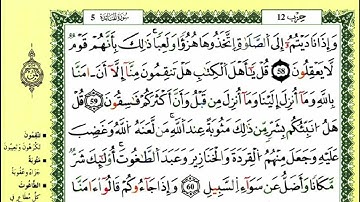 حزب 12
سورة المائدة 5
وَإِذَا نَادَيْتُمُۥٓ إِلَى ٱلصَّلَوٰةِ ٱتَّخَذُوهَا هُزُؤًا وَلَعِبًا ذَٰلِكَ بِأَنَّهُمْ قَوْمٌ
لَّا يَعْقِلُونَ 58 قُلْ يَٰٓأَهْلَ ٱلْكِتَٰبِ هَلْ تَنقِمُونَ مِنَّآ إِلَّآ أَنَ ـامَنَّا
بِاللَّهِ وَمَآ أُنزِلَ إِلَيْنَا وَمَآ أُنزِلَ مِن قَبْلُ وَأَنَّ أَكْثَرَكُمْ فَٰسِقُونَ 59 قُلْ
هَلُ ا۟نَبِّئُكُم بِشَرٍّ مِّن ذَٰلِكَ مَثُوبَةً عِندَ ٱللَّهِ مَن لَّعَنَهُ ٱللَّهُ وَغَضِبَ
عَلَيْهِ وَجَعَلَ مِنْهُمُ ٱلْقِرَدَةَ وَٱلْخَنَازِيرَ وَعَبَدَ ٱلطَّٰغُوتَ أُو۟لَٰٓئِكَ شَرٌّ
مَّكَانًا وَأَضَلُّ عَن سَوَآءِ ٱلسَّبِيلِ 60 وَإِذَا جَآءُوكُمْ قَالُوٓا۟ ءَامَنَّا
تنقمون
مثوبة
الطاغوت